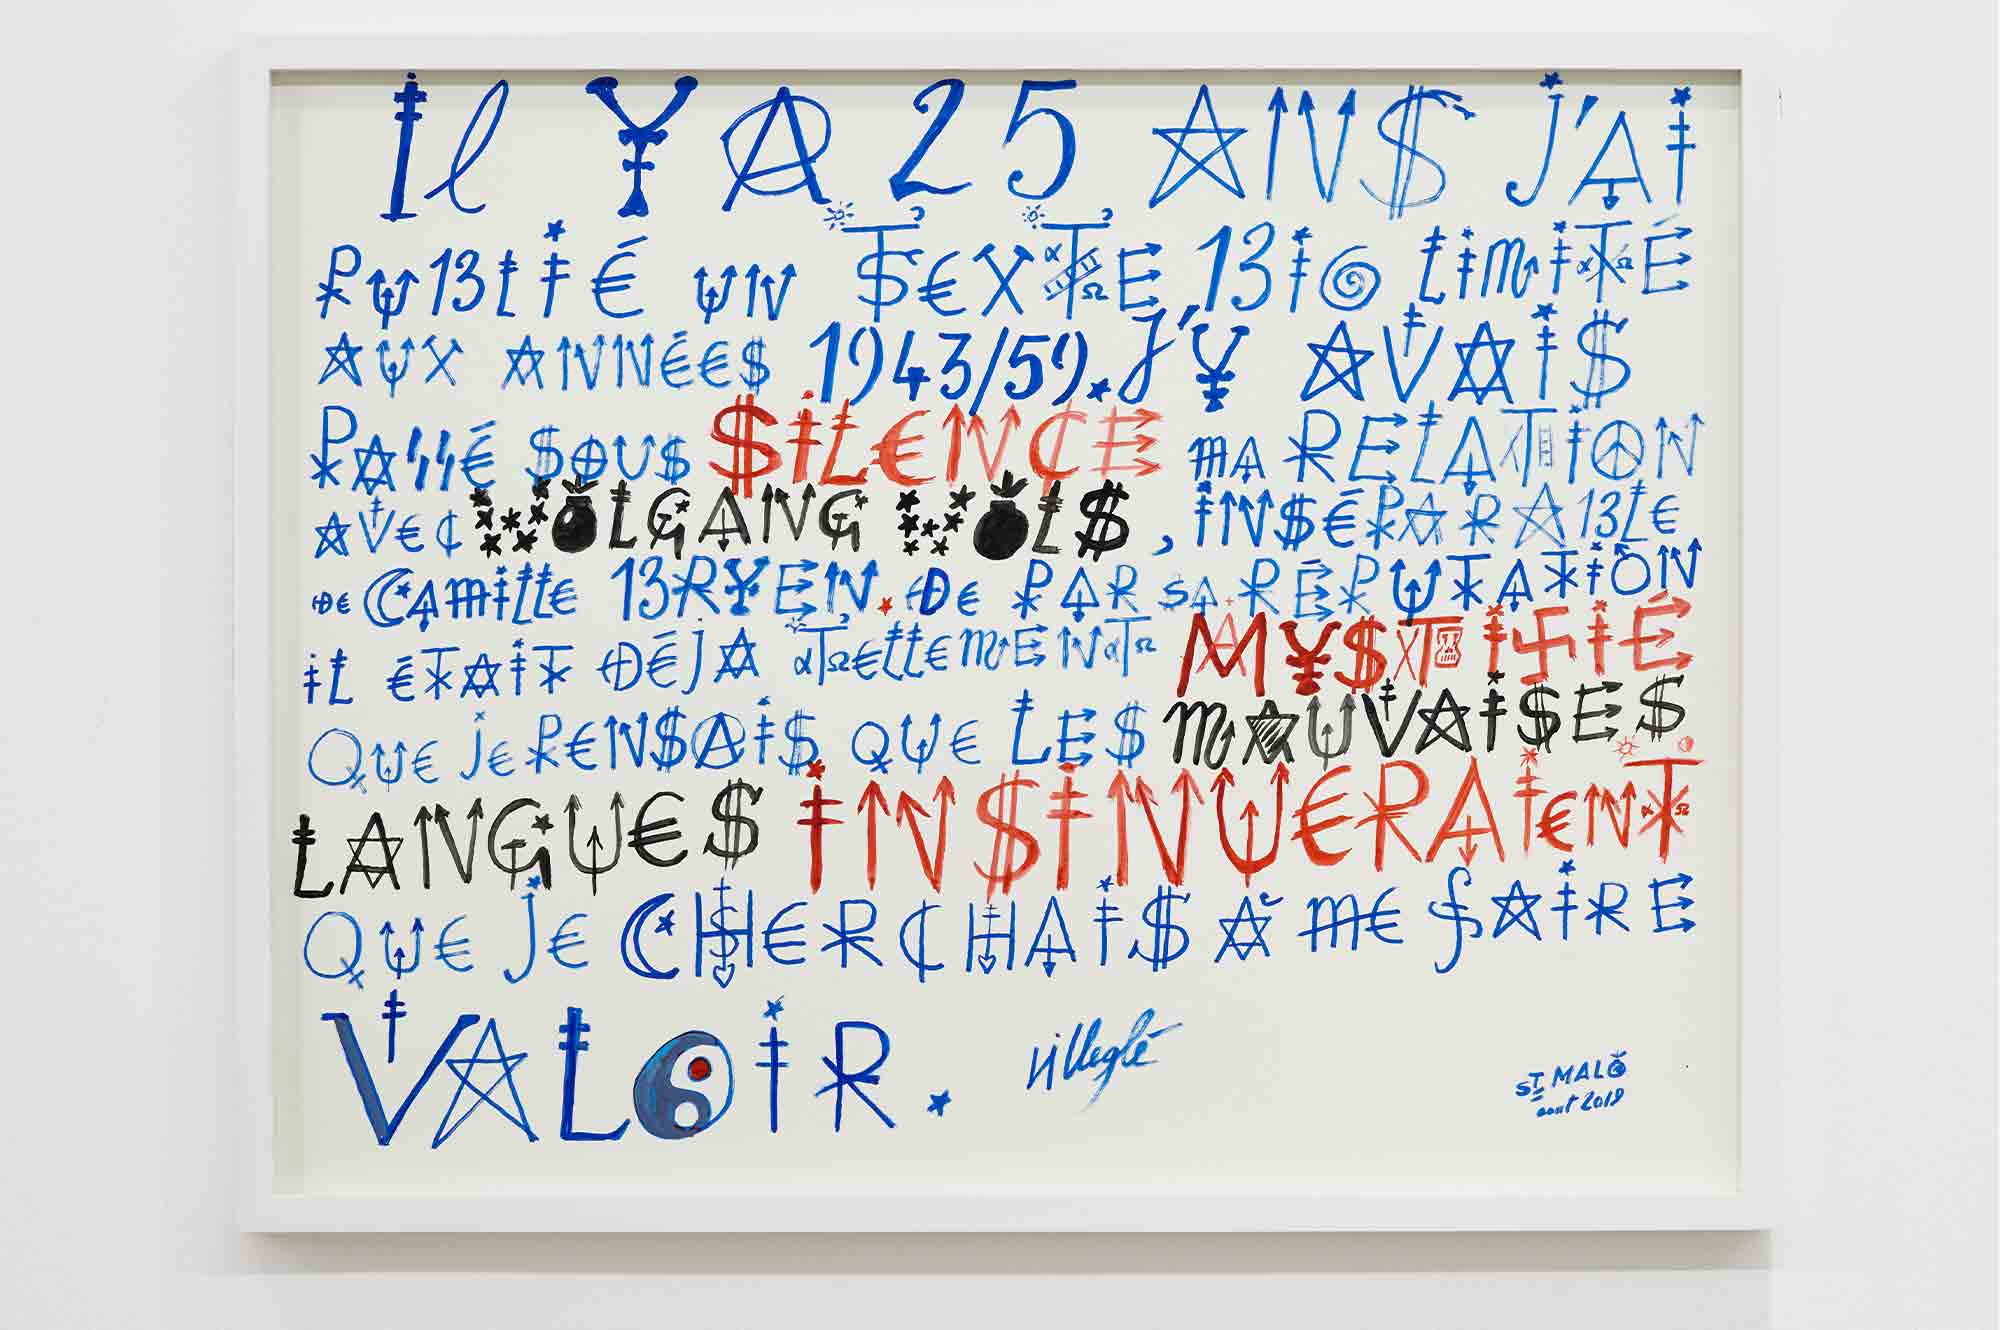 Il Y A 25 ANS J'AI
PUBLIÉ UN TEXTE BIO LIMITÉ
AUX ANNÉES 1943/59. J'Y AVAIS
PASSÉ SOUS SILENCE MA RELATION
AVEC WOLGANG WOLS, INSÉPARABLE
DE CAMILLE BRYEN. DE PAR SA RÉPUTATION
IL ÉTAIT DÉJA TELLEMENT MYSTIFIÉ
QUE JE PENSAIS QUE LES MAUVAISES
LANGUES INSINUERAIENT
QUE JE CHERCHAIS À ME FAIRE
VALOIR.
Villeglé
ST MALO
aout 2018